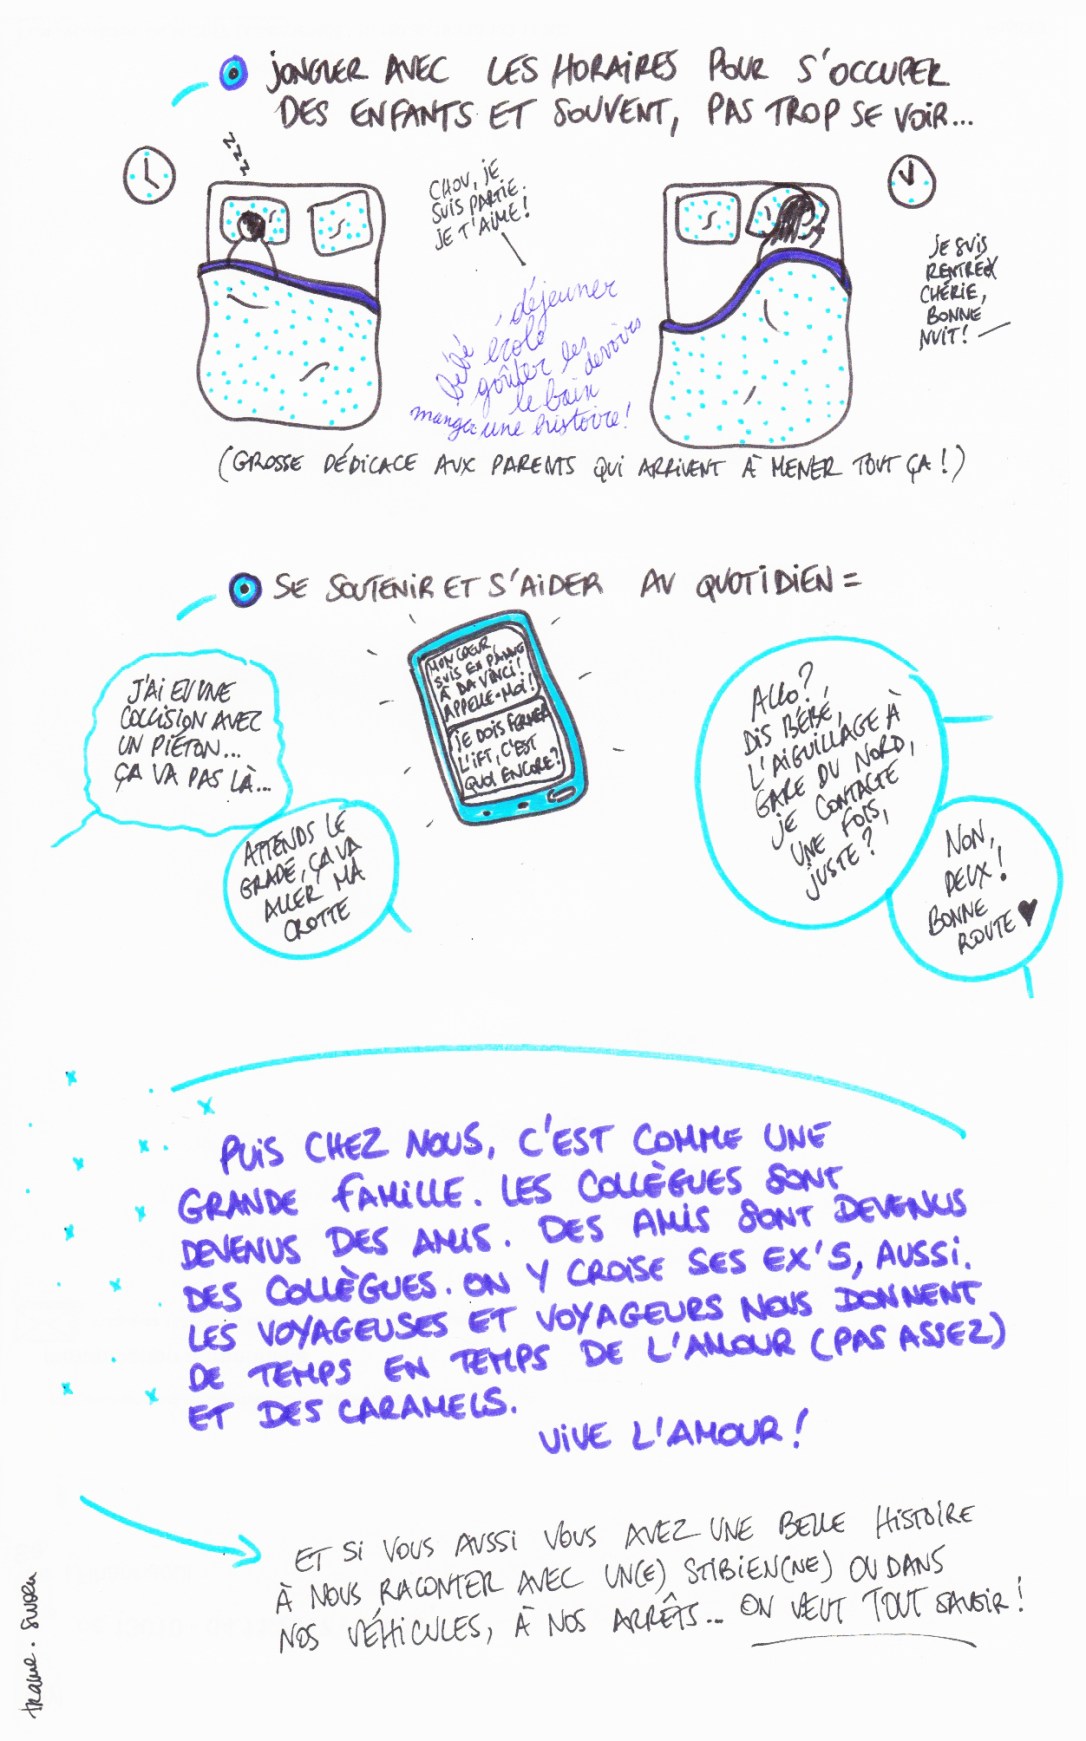 JONGLER AVEC LES HORAIRES POUR S'OCCUPER
DES ENFANTS ET SOUVENT, PAS TROP SE VOIR...
zzz
CHOU, JE
SUIS PARTIE.
JE T'AIME!
JE SUIS
RENTRÉ
CHÉRIE,
BONNE
NUIT!
déjeuner
bébé école
goûter les devoirs
le bain
manger une histoire!
(GROSSE DÉDICACE AUX PARENTS QUI ARRIVENT À MENER TOUT ÇA!)
SE SOUTENIR ET S'AIDER AU QUOTIDIEN =
J'AI EU UNE
COLLISION AVEC
UN PIÉTON...
ÇA VA PAS LÀ...
ATTENDS LE
GRADÉ, ÇA VA
ALLER MA
CROTTE
MON CŒUR,
SUIS EN PANNE
À DA VINCI!
APPELLE-MOI!
JE DOIS FERMER
L'IFT, C'EST
QUOI ENCORE?
ALLO?
DIS BÉBÉ,
L'AIGUILLAGE À
GARE DU NORD,
JE CONTACTE
UNE FOIS,
JUSTE?
NON,
DEUX!
BONNE
ROUTE ♥
PUIS CHEZ NOUS, C'EST COMME UNE
GRANDE FAMILLE. LES COLLÈGUES SONT
DEVENUS DES AMIS. DES AMIS SONT DEVENUS
DES COLLÈGUES. ON Y CROISE SES EX'S, AUSSI.
LES VOYAGEUSES ET VOYAGEURS NOUS DONNENT
DE TEMPS EN TEMPS DE L'AMOUR (PAS ASSEZ)
ET DES CARAMELS.
VIVE L'AMOUR!
ET SI VOUS AUSSI VOUS AVEZ UNE BELLE HISTOIRE
À NOUS RACONTER AVEC UN(E) STIBIEN(NE) OU DANS
NOS VÉHICULES, À NOS ARRÊTS... ON VEUT TOUT SAVOIR!